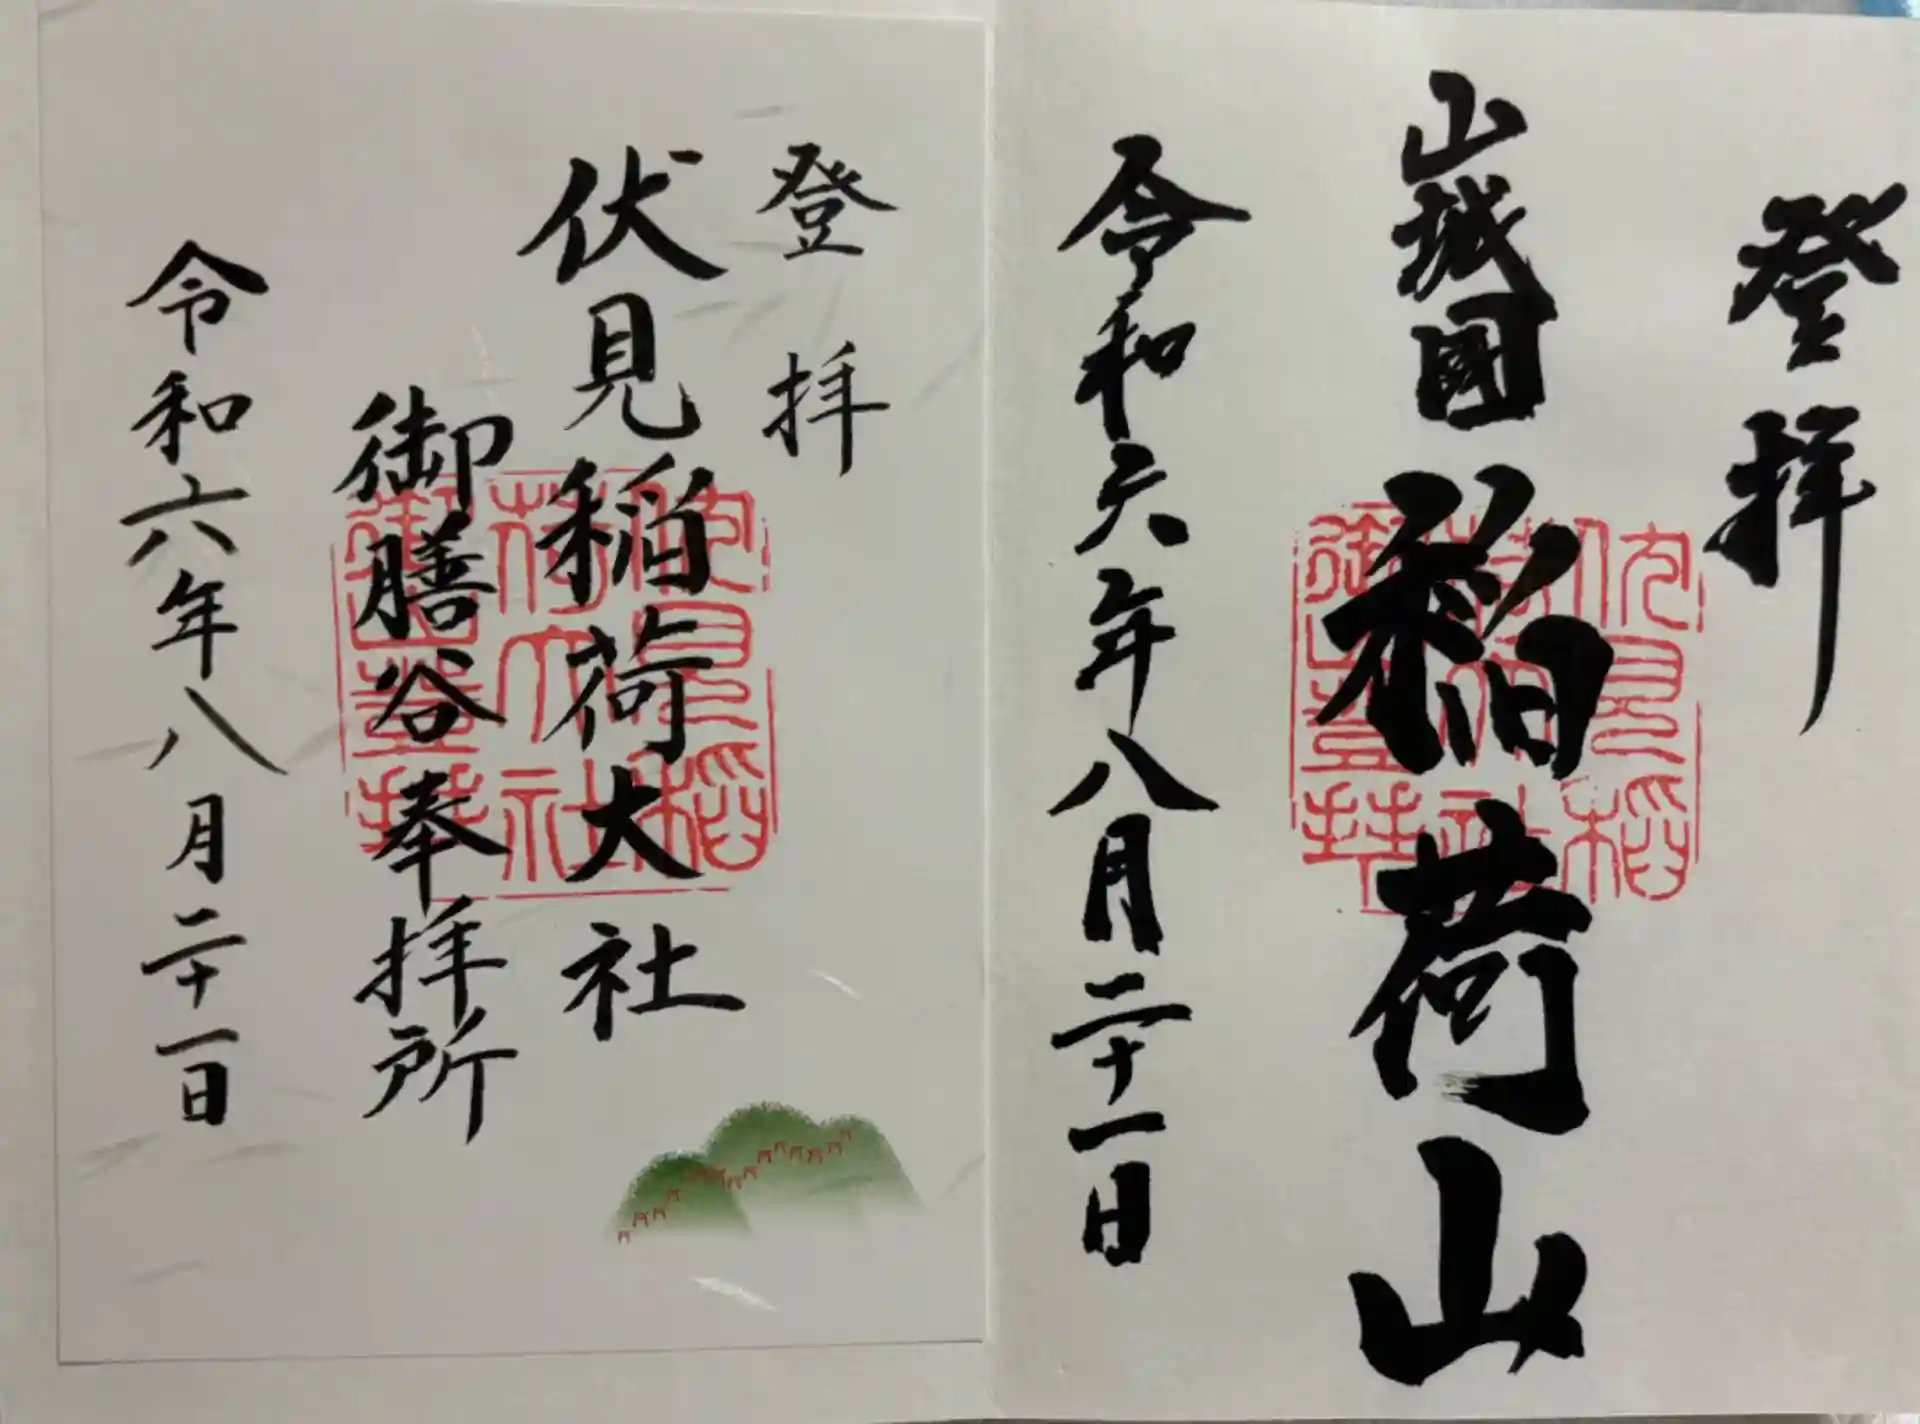 登拝
山城國 稲荷山
令和六年八月二十一日
登拝
伏見稲荷大社
御膳谷奉拝所
令和六年八月二十一日